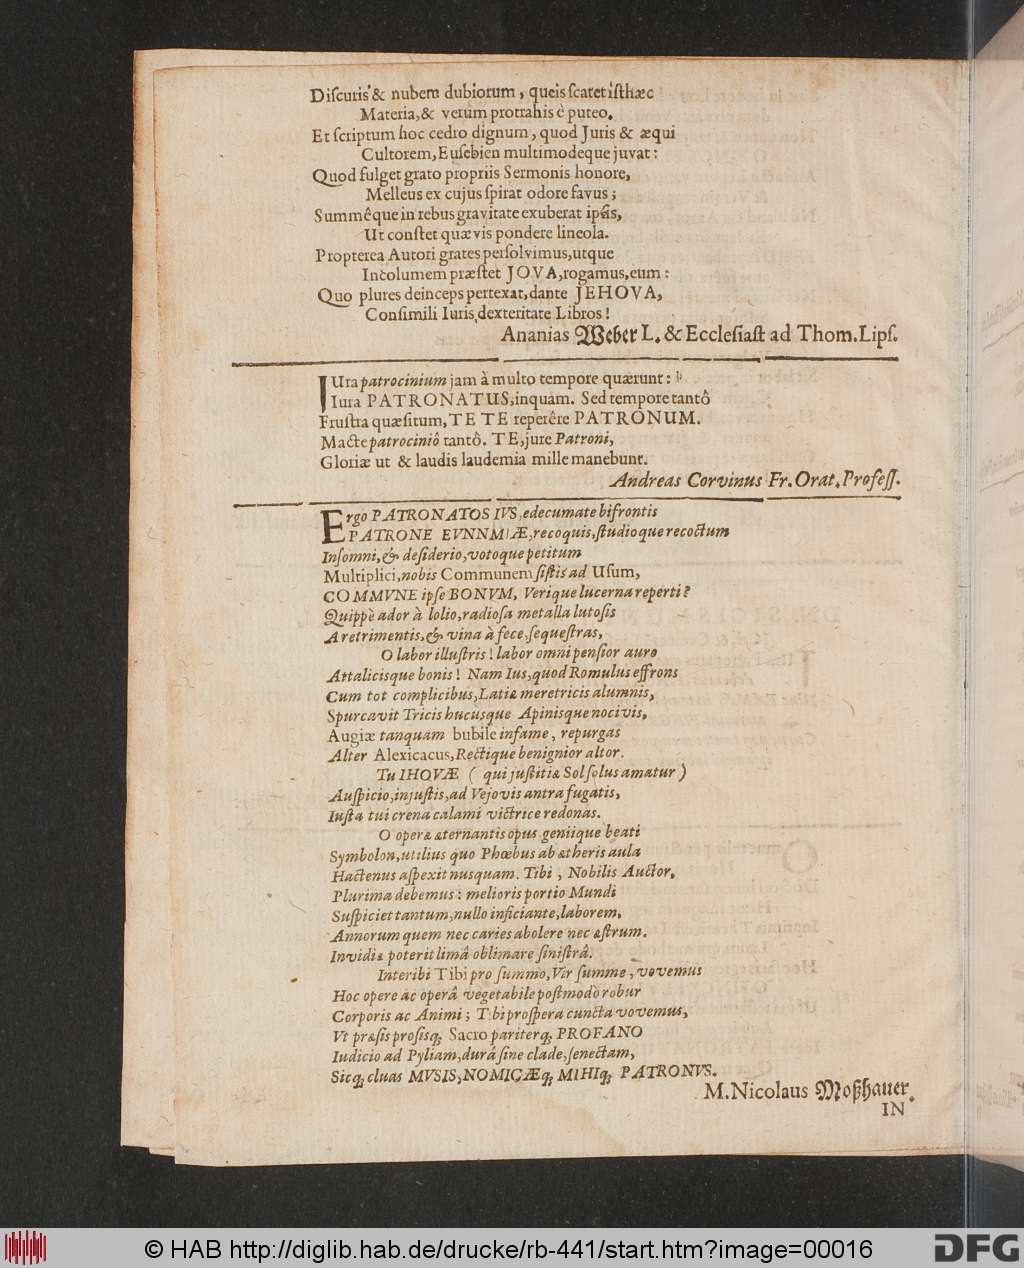 Discuris & nubem dubiorum, queis scatet isthæc
Materia, & verum protrahis è puteo.
Et scriptum hoc cedro dignum, quod Juris & æqui
Cultorem, Eusebien multimodeque juvat:
Quod fulget grato propriis Sermonis honore,
Melleus ex cujus spirat odore favus;
Summêque in rebus gravitate exuberat ipsis,
Ut constet quævis pondere lineola.
Propterea Autori grates persolvimus, utque
Incolumem præstet JOVA, rogamus, eum:
Quo plures deinceps pertexat, dante JEHOVA,
Consimili Iuris dexteritate Libros!
Ananias Weber L. & Ecclesiast ad Thom. Lips.
IUra patrocinium jam à multo tempore quærunt:
Iura PATRONATUS, inquam. Sed tempore tantô
Frustra quæsitum, TE TE reperêre PATRONUM.
Macte patrociniô tantô. TE, jure Patroni,
Gloriæ ut & laudis laudemia mille manebunt.
Andreas Corvinus Fr. Orat. Profess.
Ergo PATRONATOS IVS, edecumate bifrontis
PATRONE EVNNMIÆ, recoquis, studioque recoctum
Insomni, & desiderio, votoque petitum
Multiplici, nobis Communem sistis ad Usum,
COMMVNE ipse BONVM, Verique lucerna reperti?
Quippè ador à lolio, radiosa metalla lutosis
A retrimentis, & vina à fece, sequestras,
O labor illustris! labor omni pensior auro
Attalicisque bonis! Nam Ius, quod Romulus effrons
Cum tot complicibus, Latiæ meretricis alumnis,
Spurcavit Tricis hucusque Apinisque nocivis,
Augiæ tanquam bubile infame, repurgas
Alter Alexicacus, Rectique benignior altor.
Tu IHOVÆ (qui justitiæ Sol solus amatur)
Auspicio, injustis, ad Vejovis antra fugatis,
Iusta tui crena calami victrice redonas.
O operæ æternantis opus geniique beati
Symbolon, utilius quo Phœbus ab ætheris aula
Hactenus aspexit nusquam. Tibi, Nobilis Auctor,
Plurima debemus: melioris portio Mundi
Suspiciet tantum, nullo inficiante, laborem,
Annorum quem nec caries abolere nec æstrum.
Invidiæ poterit limâ oblimare sinistrâ.
Interibi Tibi pro summo, Vir summe, vovemus
Hoc opere ac operâ vegetabile postmodò robur
Corporis ac Animi; Tibi prospera cuncta vovemus,
Vt præsis prosisq; Sacro pariterq; PROFANO
Iudicio ad Pyliam, durâ sine clade, senectam,
Sicq; cluas MVSIS, NOMICÆq; MIHIq; PATRONVS.
M. Nicolaus Moßhauer.
IN
© HAB http://diglib.hab.de/drucke/rb-441/start.htm?image=00016
DFG